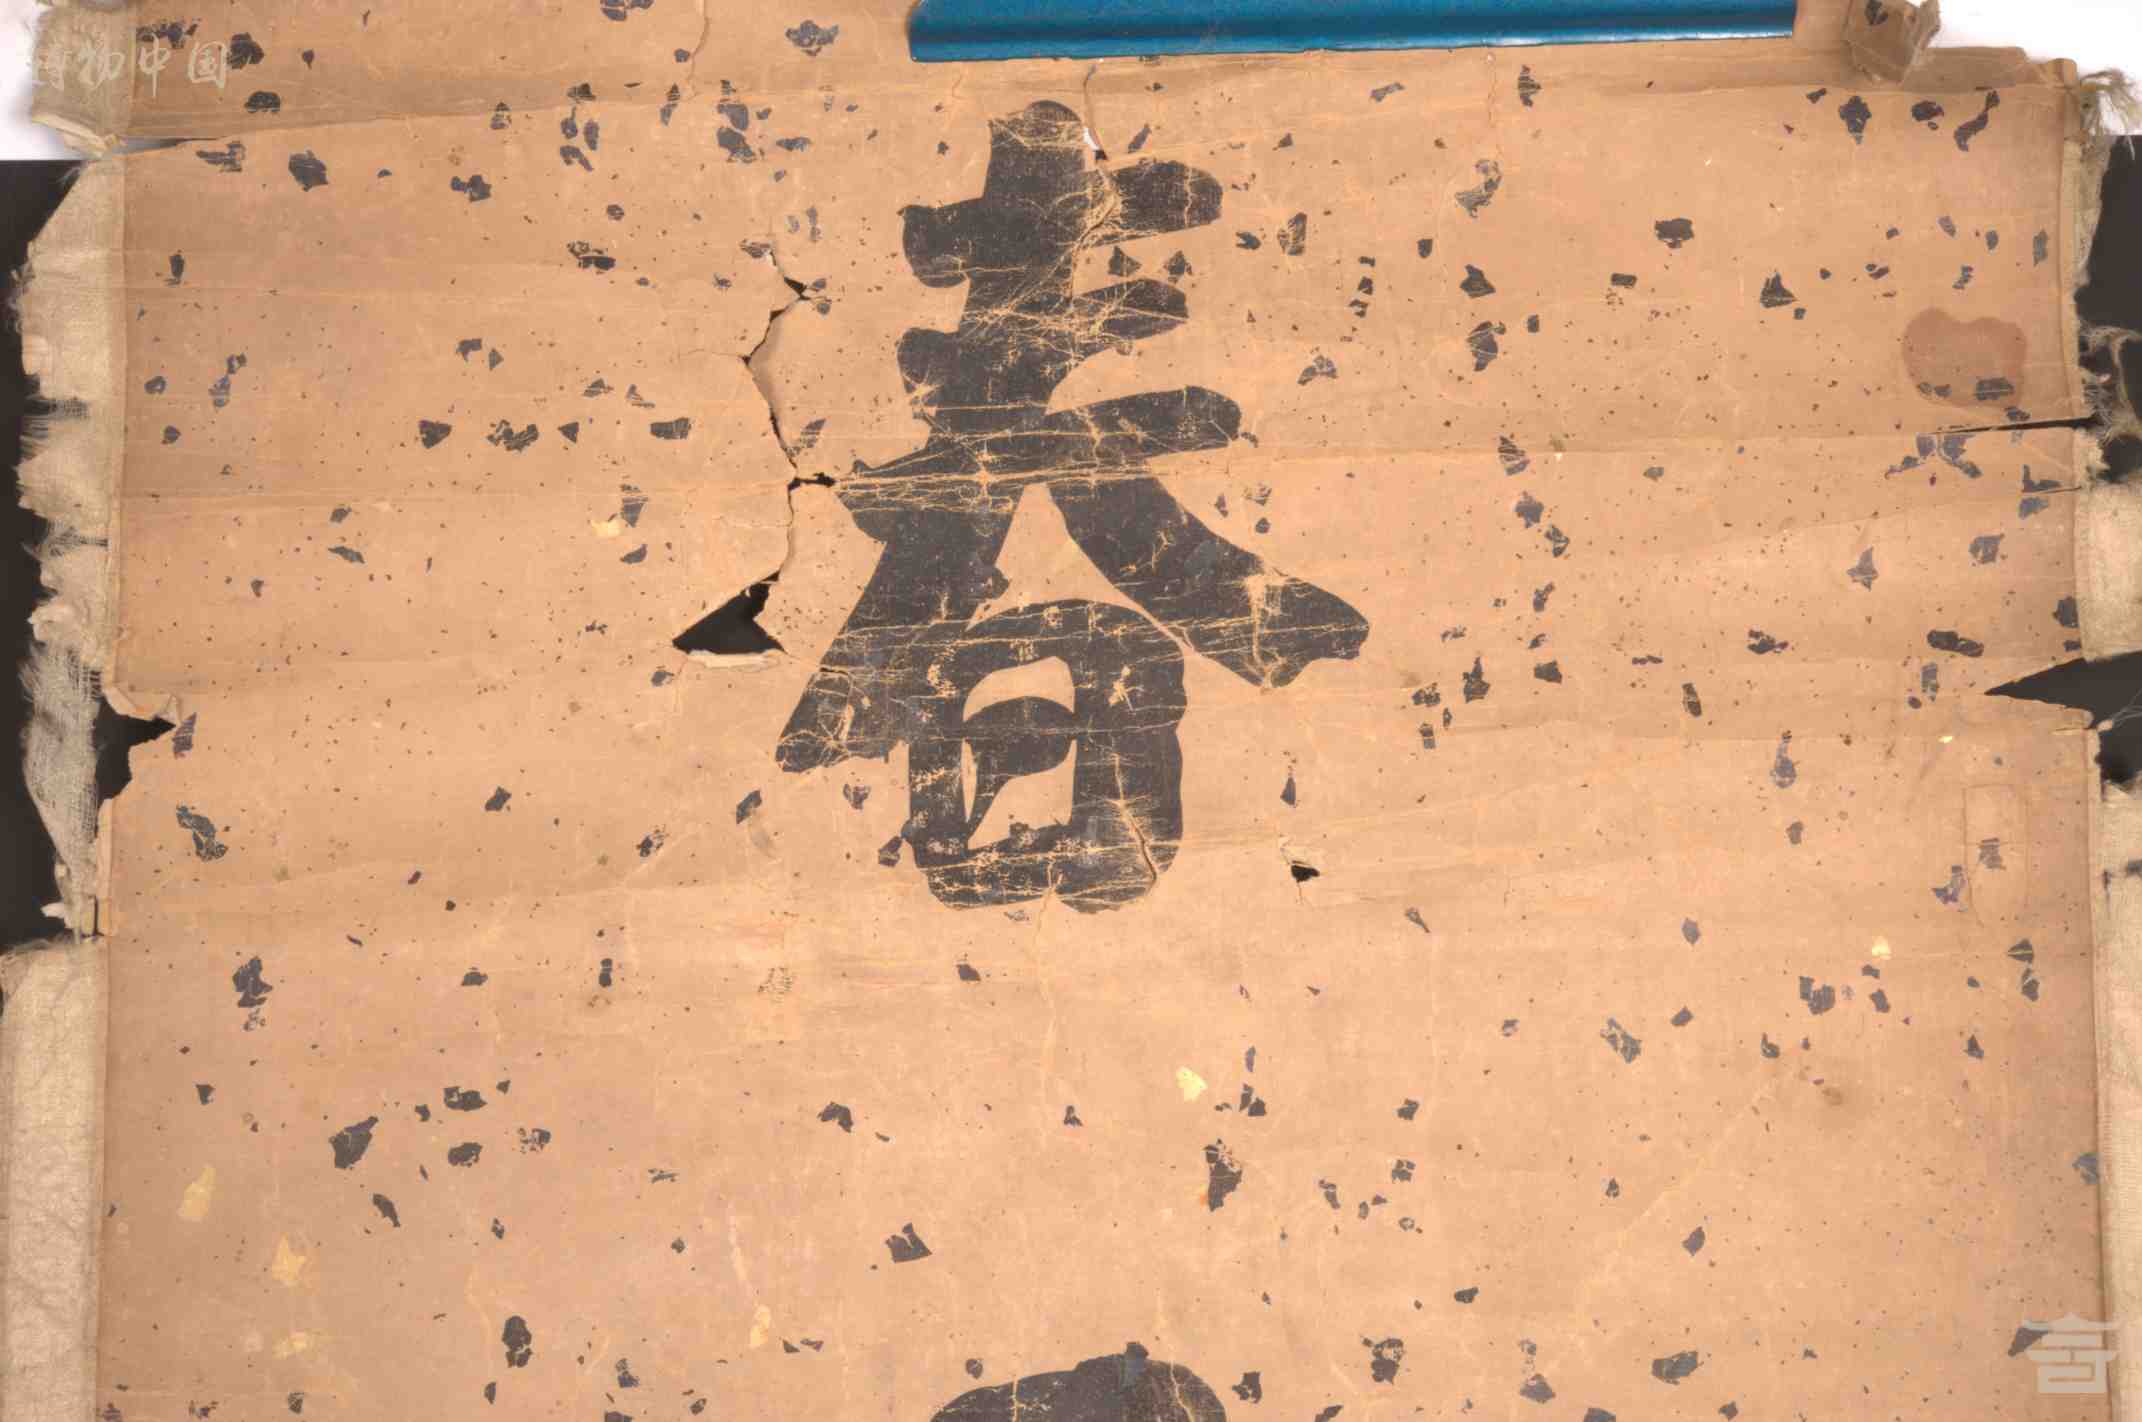 博物中国
春